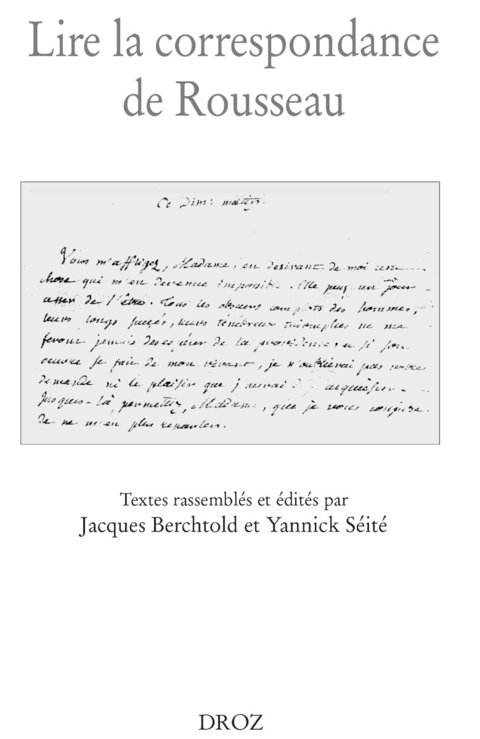 Lire la correspondance
de Rousseau
Ce Dim: matin.
Vous m'affligez, Madame, en desirant de moi une
chose qui m'est devenue impossible. Elle peut un jour
cesser de l'être. Tous les obscurs complots des hommes,
leurs longs succès, leurs ténébreux triomphes ne me
feront jamais desespérer de la providence, et si son
œuvre se fait de mon vivant, je n'oublierai pas votre
demande ni le plaisir que j'aurai d'y acquiescer.
Jusques-là, permettez, Madame, que je vous conjure
de ne m'en plus reparler.
Textes rassemblés et édités par
Jacques Berchtold et Yannick Séité
DROZ